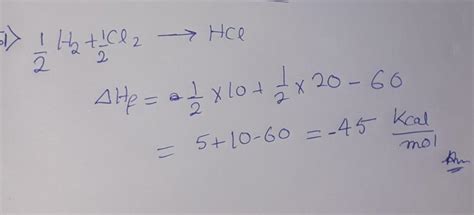 5) 1/2 H₂ + 1/2 Cl₂ → HCl
ΔHf = 1/2 × 10 + 1/2 × 20 - 60
= 5 + 10 - 60 = -45 Kcal/mol
Am